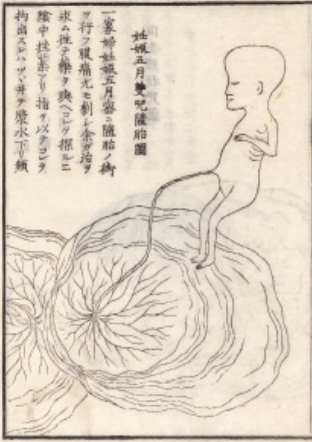 妊娠五月雙兒墮胎圖
一寡婦妊娠五月窃ニ墮胎ノ術
ヲ行フ腹痛尤モ劇シ余ガ治ヲ
求ム往テ藥ヲ與ヘコレヲ探ルニ
陰中
アリ指ヲ以テコレヲ
拘出
水下リ頻